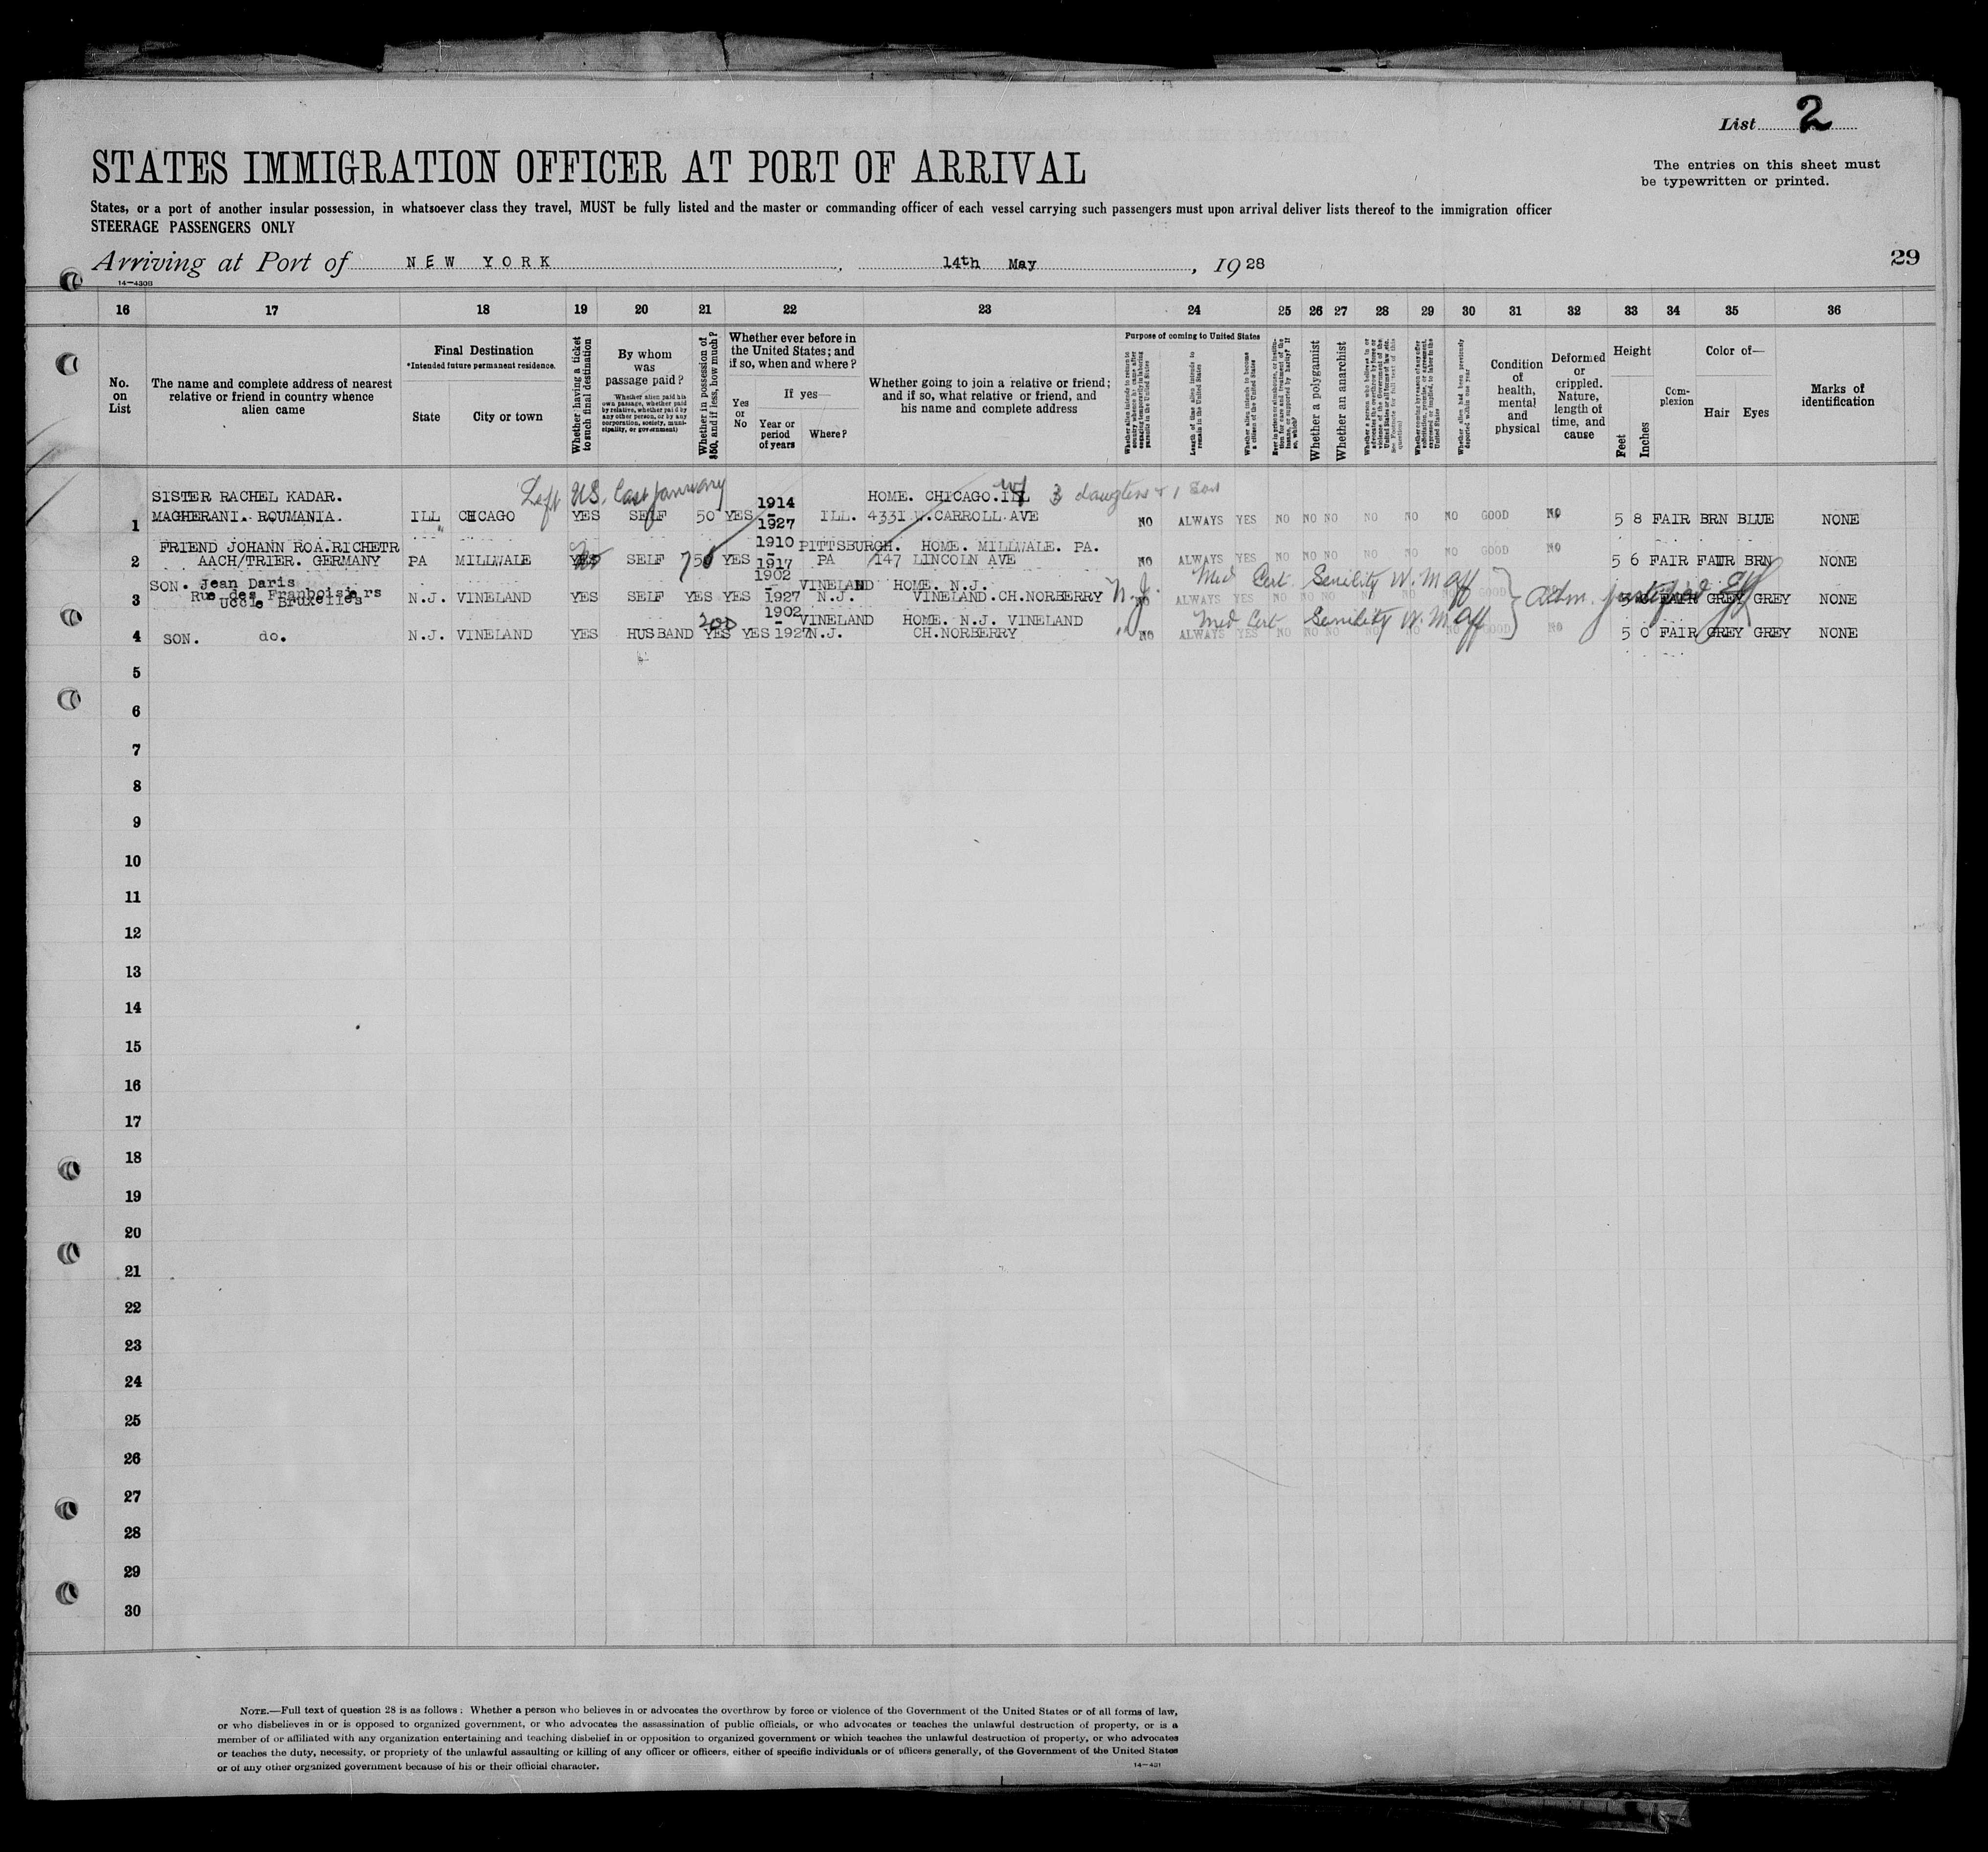 List 2
STATES IMMIGRATION OFFICER AT PORT OF ARRIVAL
The entries on this sheet must
be typewritten or printed.
States, or a port of another insular possession, in whatsoever class they travel, MUST be fully listed and the master or commanding officer of each vessel carrying such passengers must upon arrival deliver lists thereof to the immigration officer
STEERAGE PASSENGERS ONLY
Arriving at Port of NEW YORK, 14th May, 1928
29
14—430B
16 17 18 19 20 21 22 23 24 25 26 27 28 29 30 31 32 33 34 35 36
No. on List
The name and complete address of nearest relative or friend in country whence alien came
Final Destination
*Intended future permanent residence.
State
City or town
Whether having a ticket to such final destination
By whom was passage paid?
Whether alien paid his own passage, whether paid by relative, whether paid by any other person, or by any corporation, society, municipality, or government)
Whether in possession of $50, and if less, how much?
Whether ever before in the United States; and if so, when and where?
Yes or No
If yes—
Year or period of years
Where?
Whether going to join a relative or friend; and if so, what relative or friend, and his name and complete address
Purpose of coming to United States
Length of time alien intends to remain in the United States
Whether alien intends to become a citizen of the United States
Whether a polygamist
Whether an anarchist
Whether alien had been previously deported within one year
Condition of health, mental and physical
Deformed or crippled. Nature, length of time, and cause
Height
Feet
Inches
Complexion
Color of—
Hair
Eyes
Marks of identification
Left US. Last January
SISTER RACHEL KADAR. 1914 HOME. CHICAGO.ILL wf 3 daugters + 1 son
1 MAGHERANI. ROUMANIA. ILL CHICAGO YES SELF 50 YES - 1927 ILL. 4331 W.CARROLL AVE NO ALWAYS YES NO NO NO NO NO NO GOOD NO 5 8 FAIR BRN BLUE NONE
FRIEND JOHANN ROA.RICHETR 1910 PITTSBURGH. HOME. MILLWALE. PA.
2 AACH/TRIER. GERMANY PA MILLWALE SELF 50 YES - 1917 PA 147 LINCOLN AVE NO ALWAYS YES NO NO NO NO NO NO GOOD NO 5 6 FAIR FAIR BRN NONE
SON. Jean Daris 1902 VINELAND HOME. N.J. Med Cert Senility W. M. Aff
3 Rue des Franboisiers Uccle Bruxelles N.J. VINELAND YES SELF YES YES - 1927 N.J. VINELAND.CH.NORBERRY N.J. NO ALWAYS YES NO NO NO NO NO NO GOOD NO 5 FAIR GREY GREY NONE
200 1902 VINELAND HOME. N.J. VINELAND Med Cert Senility W. M. Aff
4 SON. do. N.J. VINELAND YES HUSBAND YES YES - 1927 N.J. CH.NORBERRY " NO ALWAYS YES NO NO NO NO NO NO GOOD NO 5 0 FAIR GREY GREY NONE
5
6
7
8
9
10
11
12
13
14
15
16
17
18
19
20
21
22
23
24
25
26
27
28
29
30
NOTE.—Full text of question 28 is as follows: Whether a person who believes in or advocates the overthrow by force or violence of the Government of the United States or of all forms of law,
or who disbelieves in or is opposed to organized government, or who advocates the assassination of public officials, or who advocates or teaches the unlawful destruction of property, or is a
member of or affiliated with any organization entertaining and teaching disbelief in or opposition to organized government or which teaches the unlawful destruction of property, or who advocates
or teaches the duty, necessity, or propriety of the unlawful assaulting or killing of any officer or officers, either of specific individuals or of officers generally, of the Government of the United States
or of any other organized government because of his or their official character.
14—431